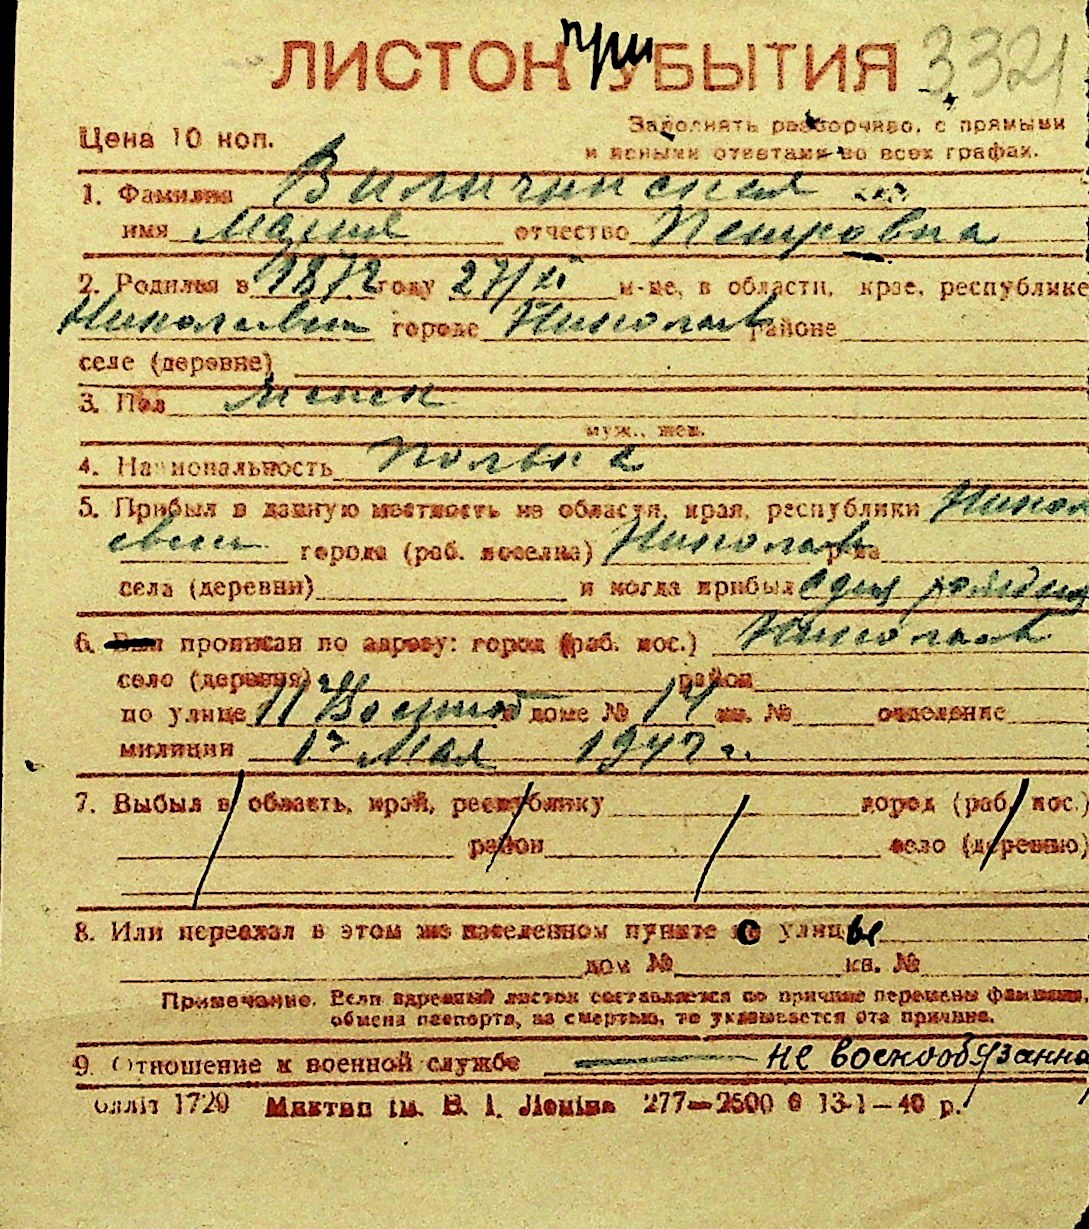 ЛИСТОК при УБЫТИЯ 3321
Цена 10 коп.
Заполнять разборчиво, с прямыми
и ясными ответами во всех графах.
1. Фамилия Вильчинская
имя Мария отчество Петровна
2. Родился в 1872 году 27/XI м-це, в области, крае, республике
Николаевск городе Николаев районе
селе (деревне)
3. Пол женск
муж., жен.
4. Национальность полька
5. Прибыл в данную местность из области, края, республики Никол
аевск города (раб. поселка) Николаев р-на
села (деревни) и когда прибыл одна рождения
6. прописан по адресу: город (раб. пос.) Николаев
село (деревня) район
по улице 11 Военной в доме № 14 кв. № отделение
милиции 1го Мая 1947 г.
7. Выбыл в область, край, республику город (раб. пос.)
район село (деревню)
8. Или переехал в этом же населенном пункте с улицы
дом № кв. №
Примечание. Если адресный листок составляется по причине перемены фамилии,
обмена паспорта, за смертью, то указывается эта причина.
9. Отношение к военной службе не военнообязанна
блліт 1720 Миктип ім. В. І. Леніна 277—2500 0 13-1—40 р.